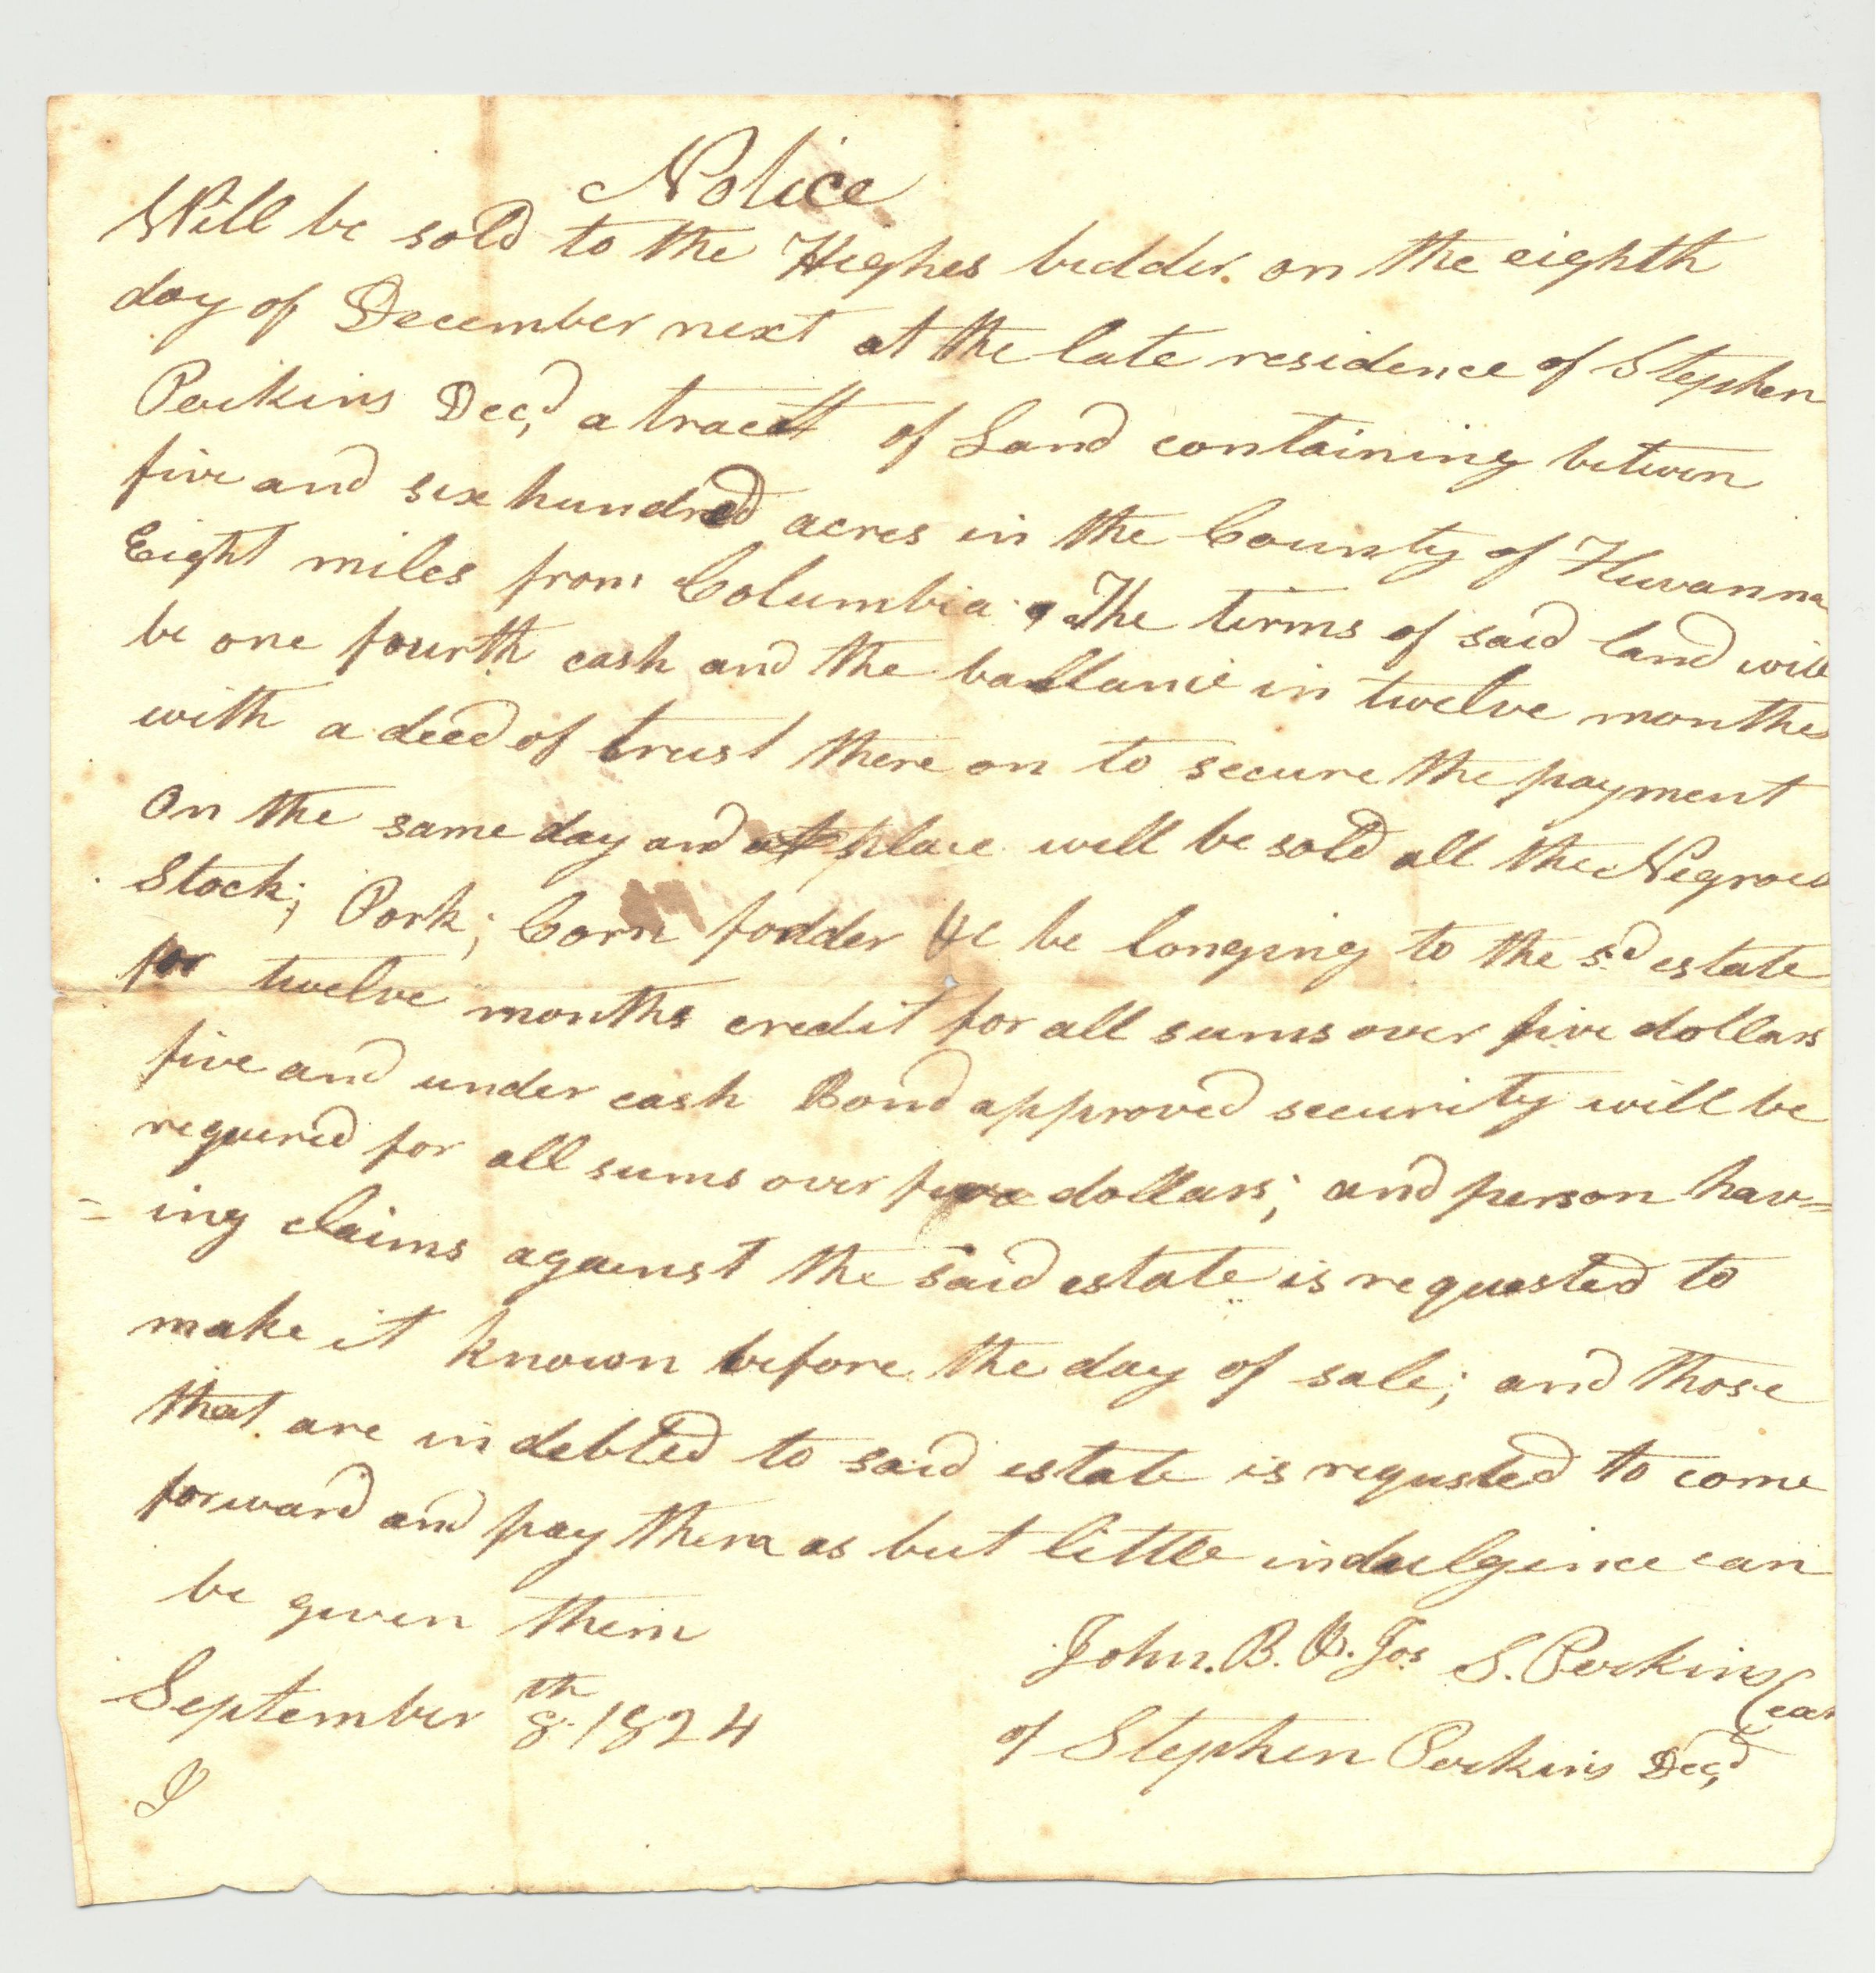 Notice
Will be sold to the Highes bidder. on the eighth
day of December next at the late residence of Stephen
Perkins Decd, a tractt of Land containing betwen
five and six hundred acres in the County of Fluvanna
Eight miles from Columbia. The terms of said land will
be one fourth cash and the ballance in twelve months
with a deed of trust there on to secure the payment
On the same day and place will be sold all the Negroes
Stock; Pork; Corn fodder &c be longing to the sd estate
for twelve months credit for all sums over five dollars
five and under cash Bond approved security will be
required for all sums over five dollars; and person hav=
=ing claims against the said estate is requested to
make it known before the day of sale; and those
that are indebted to said estate is requsted to come
forward and pay them as but little indulgence can
be given them
John. B. & Jos S. Perkins
September 8th 1824
of Stephen Perkins Decd,